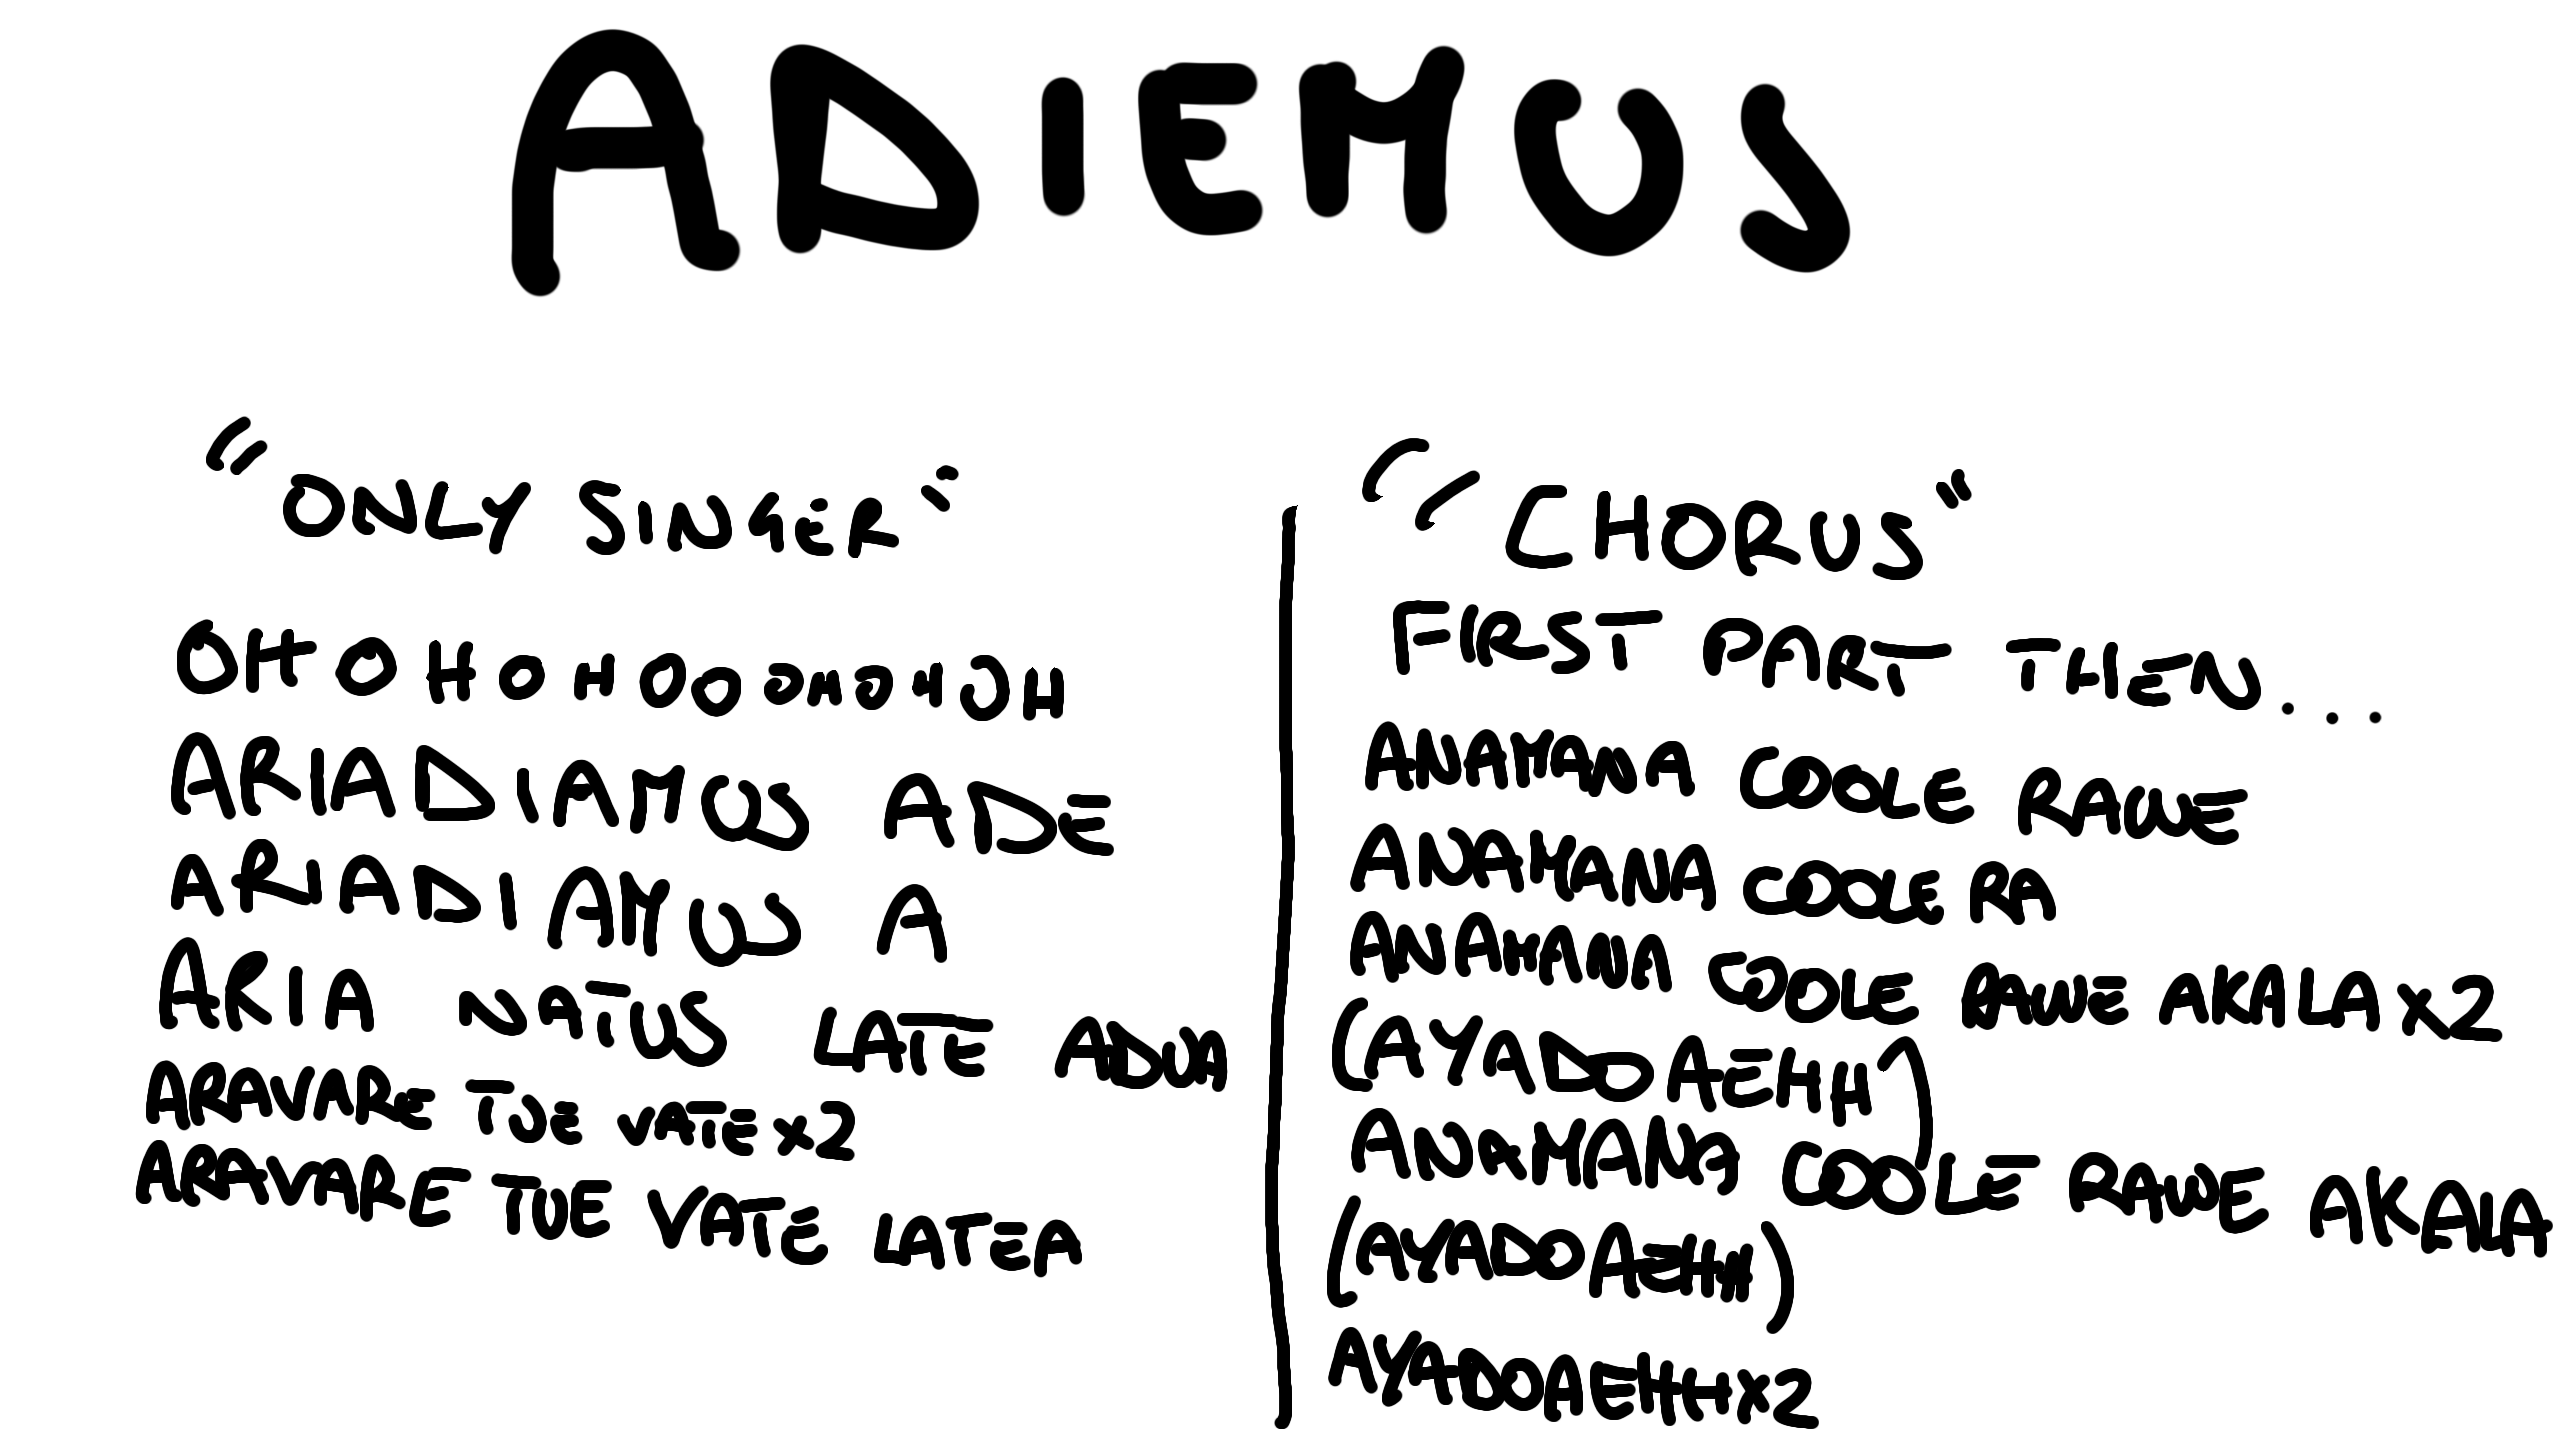 ADIEMUS
"ONLY SINGER"
OHOHOHOOOHOHOH
ARIADIAMUS ADE
ARIADIAMUS A
ARIA NATUS LATE ADUA
ARAVARE TUE VATE x2
ARAVARE TUE VATE LATEA
"CHORUS"
FIRST PART THEN...
ANAMANA COOLE RAWE
ANAMANA COOLE RA
ANAMANA COOLE RAWE AKALA x2
(AYADOAEHH)
ANAMANA COOLE RAWE AKALA
(AYADOAEHH)
AYADOAEHH x2